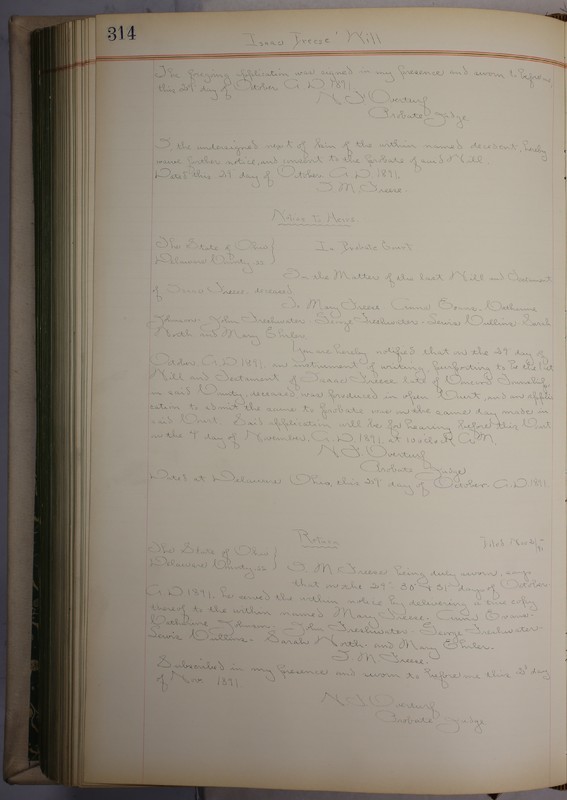 314
Isaac Freese' Will
The foregoing application was signed in my presence and sworn to before me
this 29 day of October A.D. 1891
N F Overturf
Probate Judge
I, the undersigned next of kin of the within named decedent, hereby
waive further notice, and consent to the probate of said Will.
Dated this 29 day of October A.D. 1891
T. M. Freese.
Notice to Heirs
The State of Ohio } In Probate Court
Delaware County, ss }
In the Matter of the Last Will and Testament
of Isaac Freese, deceased
To Mary Freese, Catharine
Johnson, John Freshwater, George Freshwater, Sarah
North and Mary
You are hereby notified that on the 29 day of
October A.D. 1891, an instrument of writing, purporting to be the last
Will and Testament of Isaac Freese late of Township
in said County, deceased, was produced in open Court, and an appli-
cation to admit the same to probate was on the same day made in
said Court. Said application will be for hearing before this Court
on the day of November, A.D. 1891, at 10 o'clock A.M.
N. F. Overturf
Probate Judge
Dated at Delaware Ohio, this 29 day of October A.D. 1891
Return
The State of Ohio }
Delaware County, ss } T. M. Freese being duly sworn, says
that on the 29" 30" & 31" day of October
A.D. 1891, he served the within notice by delivering a true copy
thereof to the within named Mary Freese,
Catharine Johnson, John Freshwater, George Freshwater
Sarah North and Mary
T. M. Freese.
Subscribed in my presence and sworn to before me this day
of Nov 1891
N F Overturf
Probate Judge